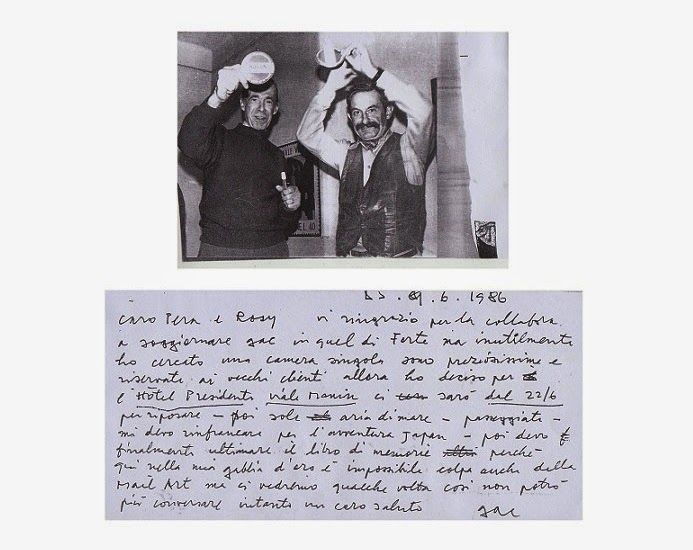 6.1986
caro Pera e Rosy vi ringrazio per la collabora
a soggiornare gac in quel di Forte ma inutilmente
ho cercato una camera singola sono preziosissime e
riservate ai vecchi clienti allora ho deciso per
l'Hotel Presidente viale Manin ci sarò dal 22/6
per riposare - poi sole aria di mare - passeggiate -
mi devo rinfrancare per l'avventura Japan - poi devo
finalmente ultimare il libro di memorie perchè
qui nella mia gabbia d'oro è impossibile colpa anche della
Mail Art ma ci vedremo qualche volta così non potrò
più conversare intanto un caro saluto gac